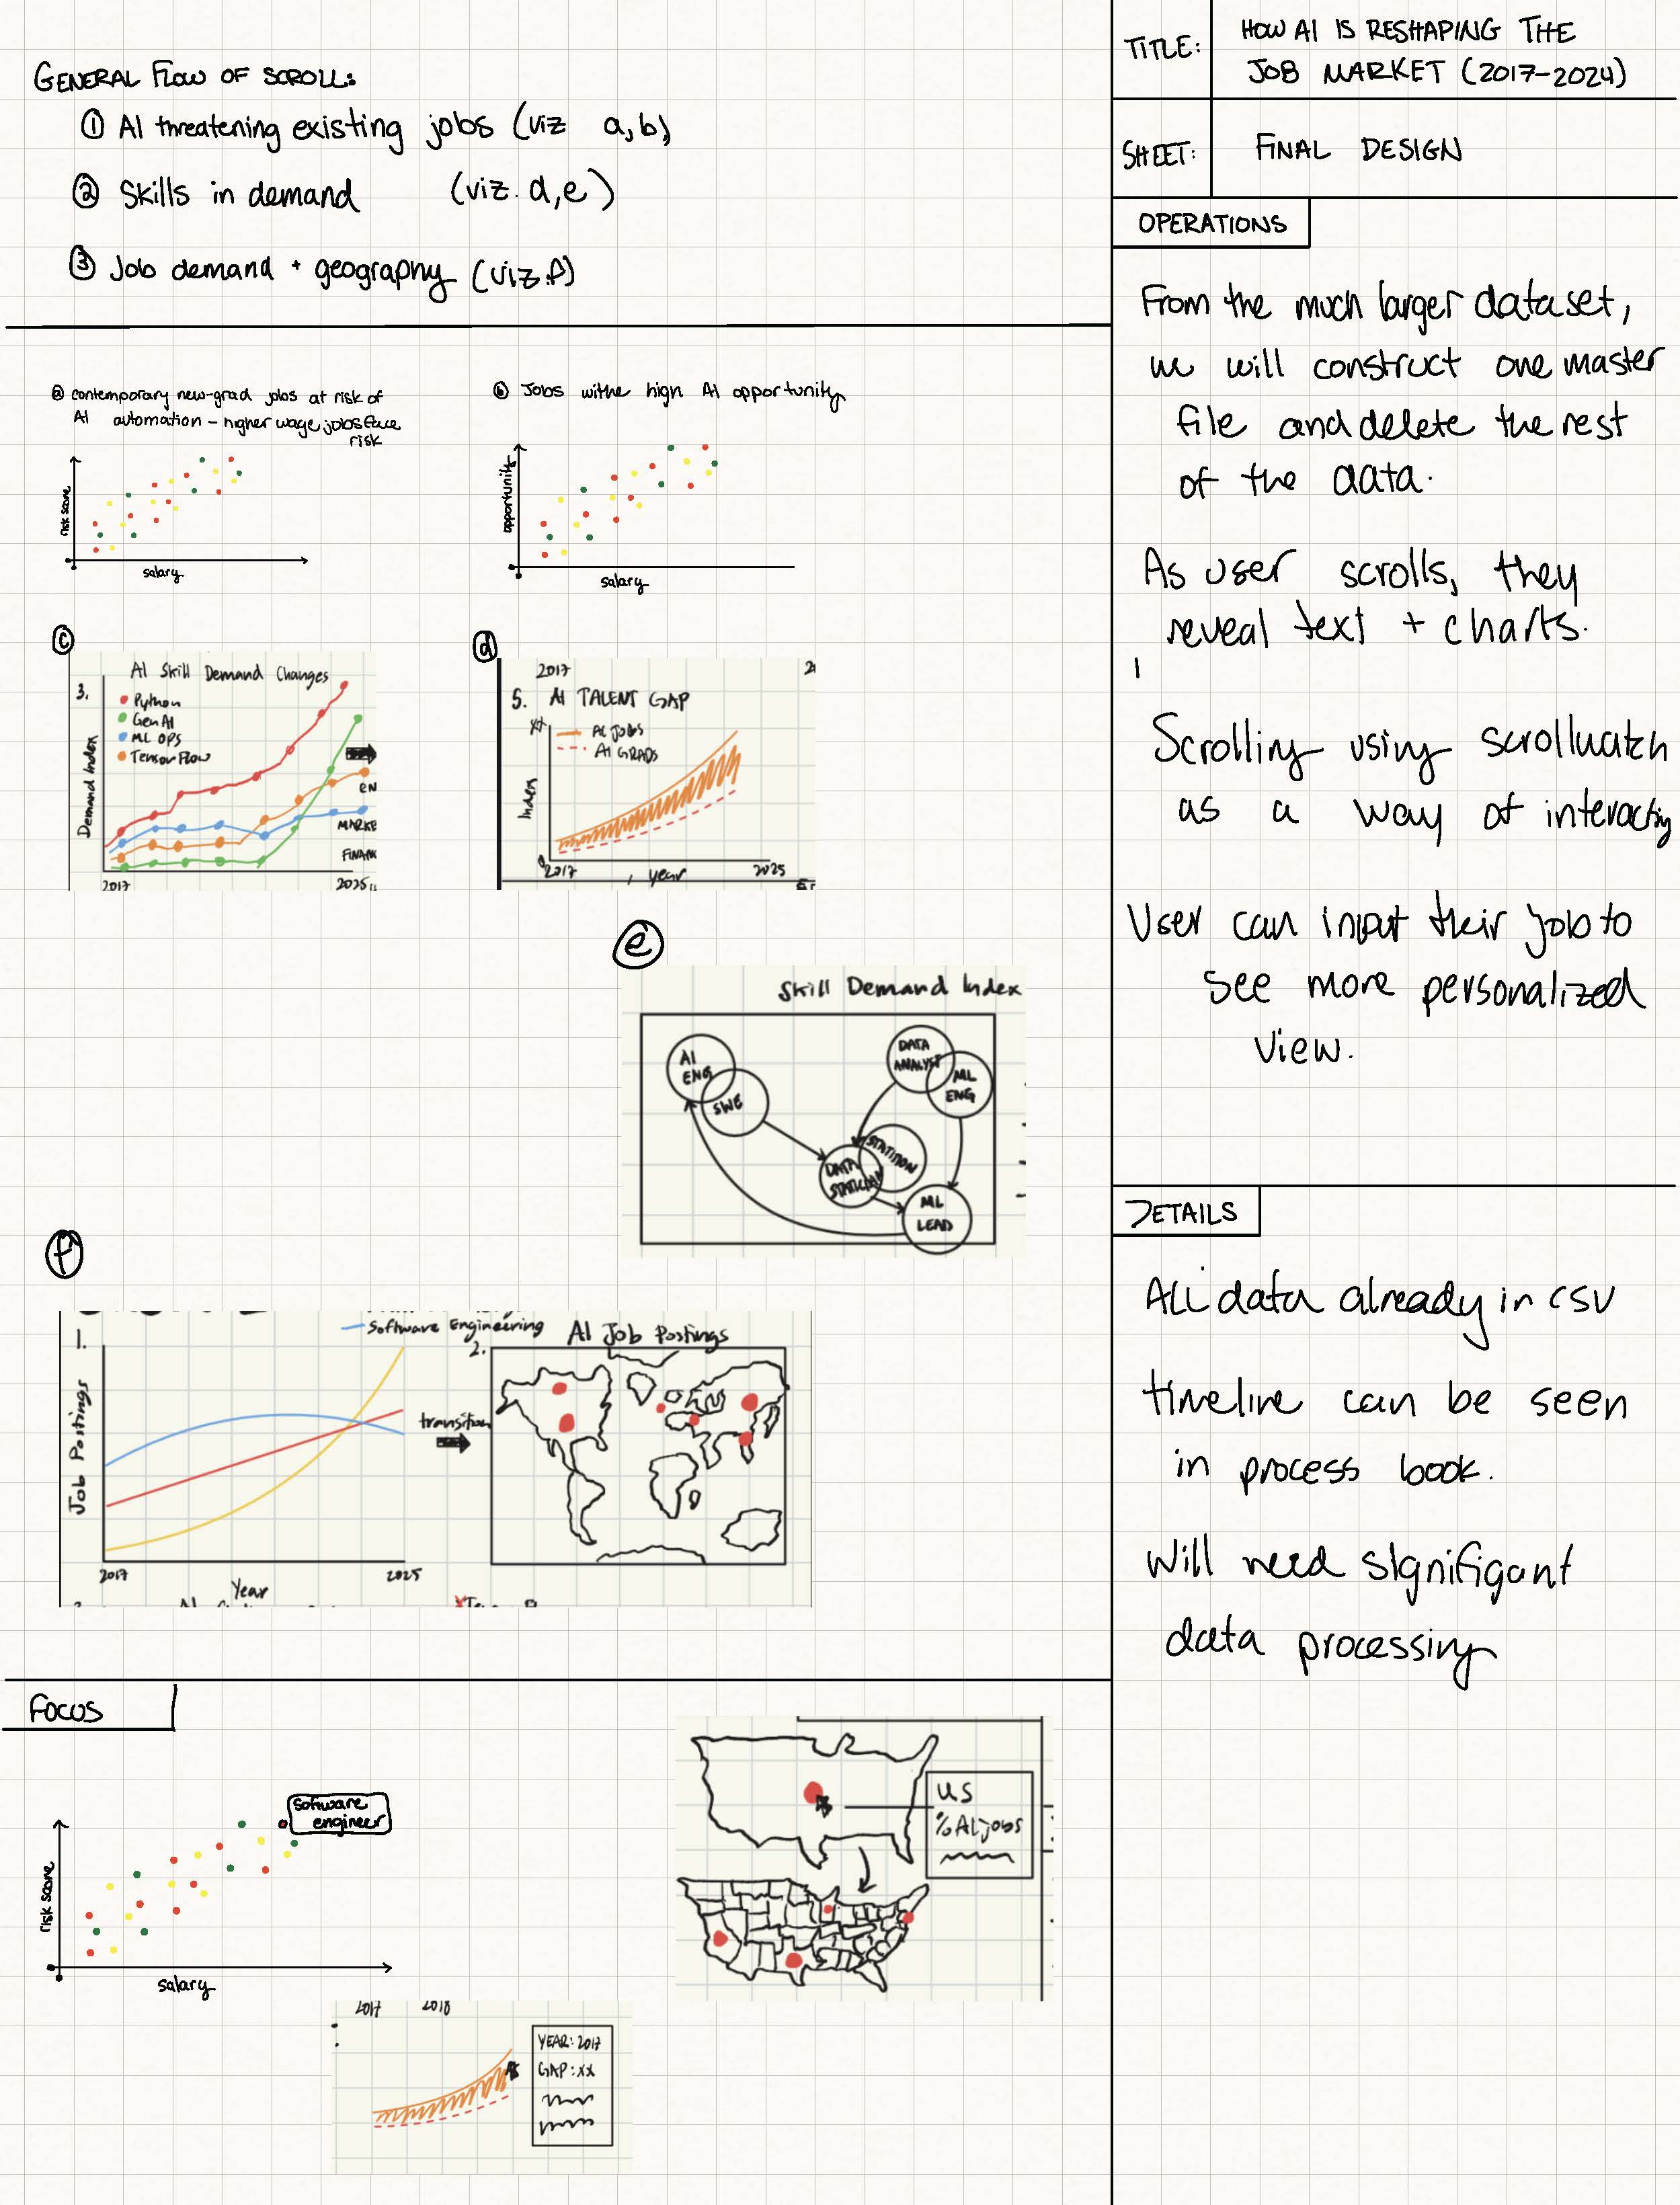 GENERAL FLOW OF SCROLL:
① AI threatening existing jobs (viz a,b)
② Skills in demand (viz. d,e)
③ Job demand + geography (viz.f)
ⓐ contemporary new-grad jobs at risk of
AI automation – higher wage jobs face
risk
risk score
salary
ⓑ Jobs withe high AI opportunity
opportunity
salary
ⓒ
3.
AI Skill Demand Changes
Python
GenAI
ML OPS
TensorFlow
Demand Index
EN
MARKE
FINAN
2017
2025
ⓓ
2017
2
5. AI TALENT GAP
AI JOBS
AI GRADS
Index
0
2017
year
2025
ⓔ
Skill Demand Index
AI
ENG
SWE
DATA
ANALYST
ML
ENG
DATA
ML
LEAD
ⓕ
1.
Software Engineering
Job Postings
2017
Year
2025
transition
2.
AI Job Postings
FOCUS
software
engineer
risk score
salary
US
% AI jobs
2017 2018
YEAR: 2017
GAP: XX
TITLE:
HOW AI IS RESHAPING THE
JOB MARKET (2017-2024)
SHEET:
FINAL DESIGN
OPERATIONS
From the much larger dataset,
we will construct one master
file and delete the rest
of the data.
As user scrolls, they
reveal text + charts.
Scrolling using scrollwatch
as a way of interacting
User can input their job to
see more personalized
view.
DETAILS
ALL data already in csv
timeline can be seen
in process book.
Will need signifigant
data processing